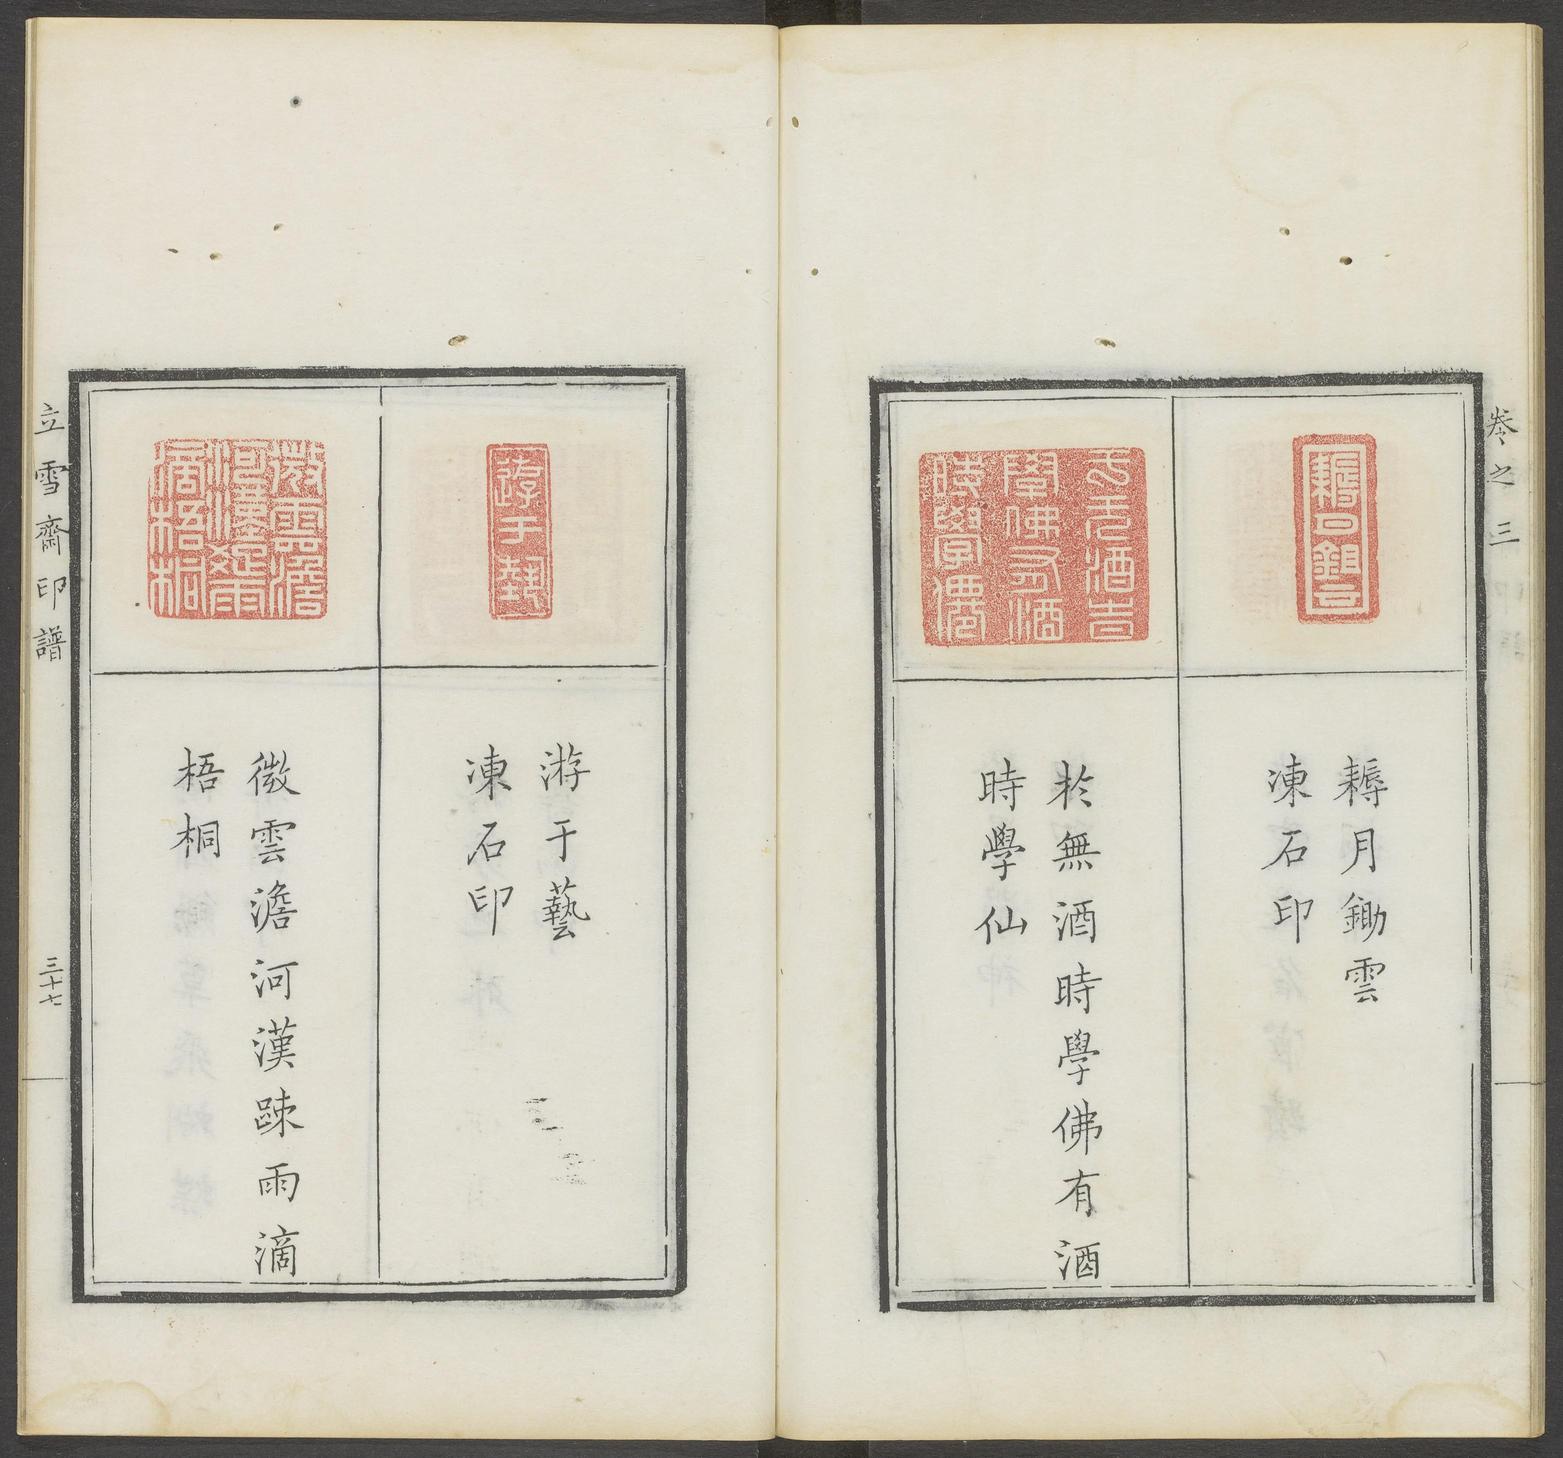 卷之三
耨月鋤雲
凍石印
於無酒時學佛有酒
時學仙
游于藝
凍石印
微雲澹河漢踈雨滴
梧桐
立雪齋印譜
三十七